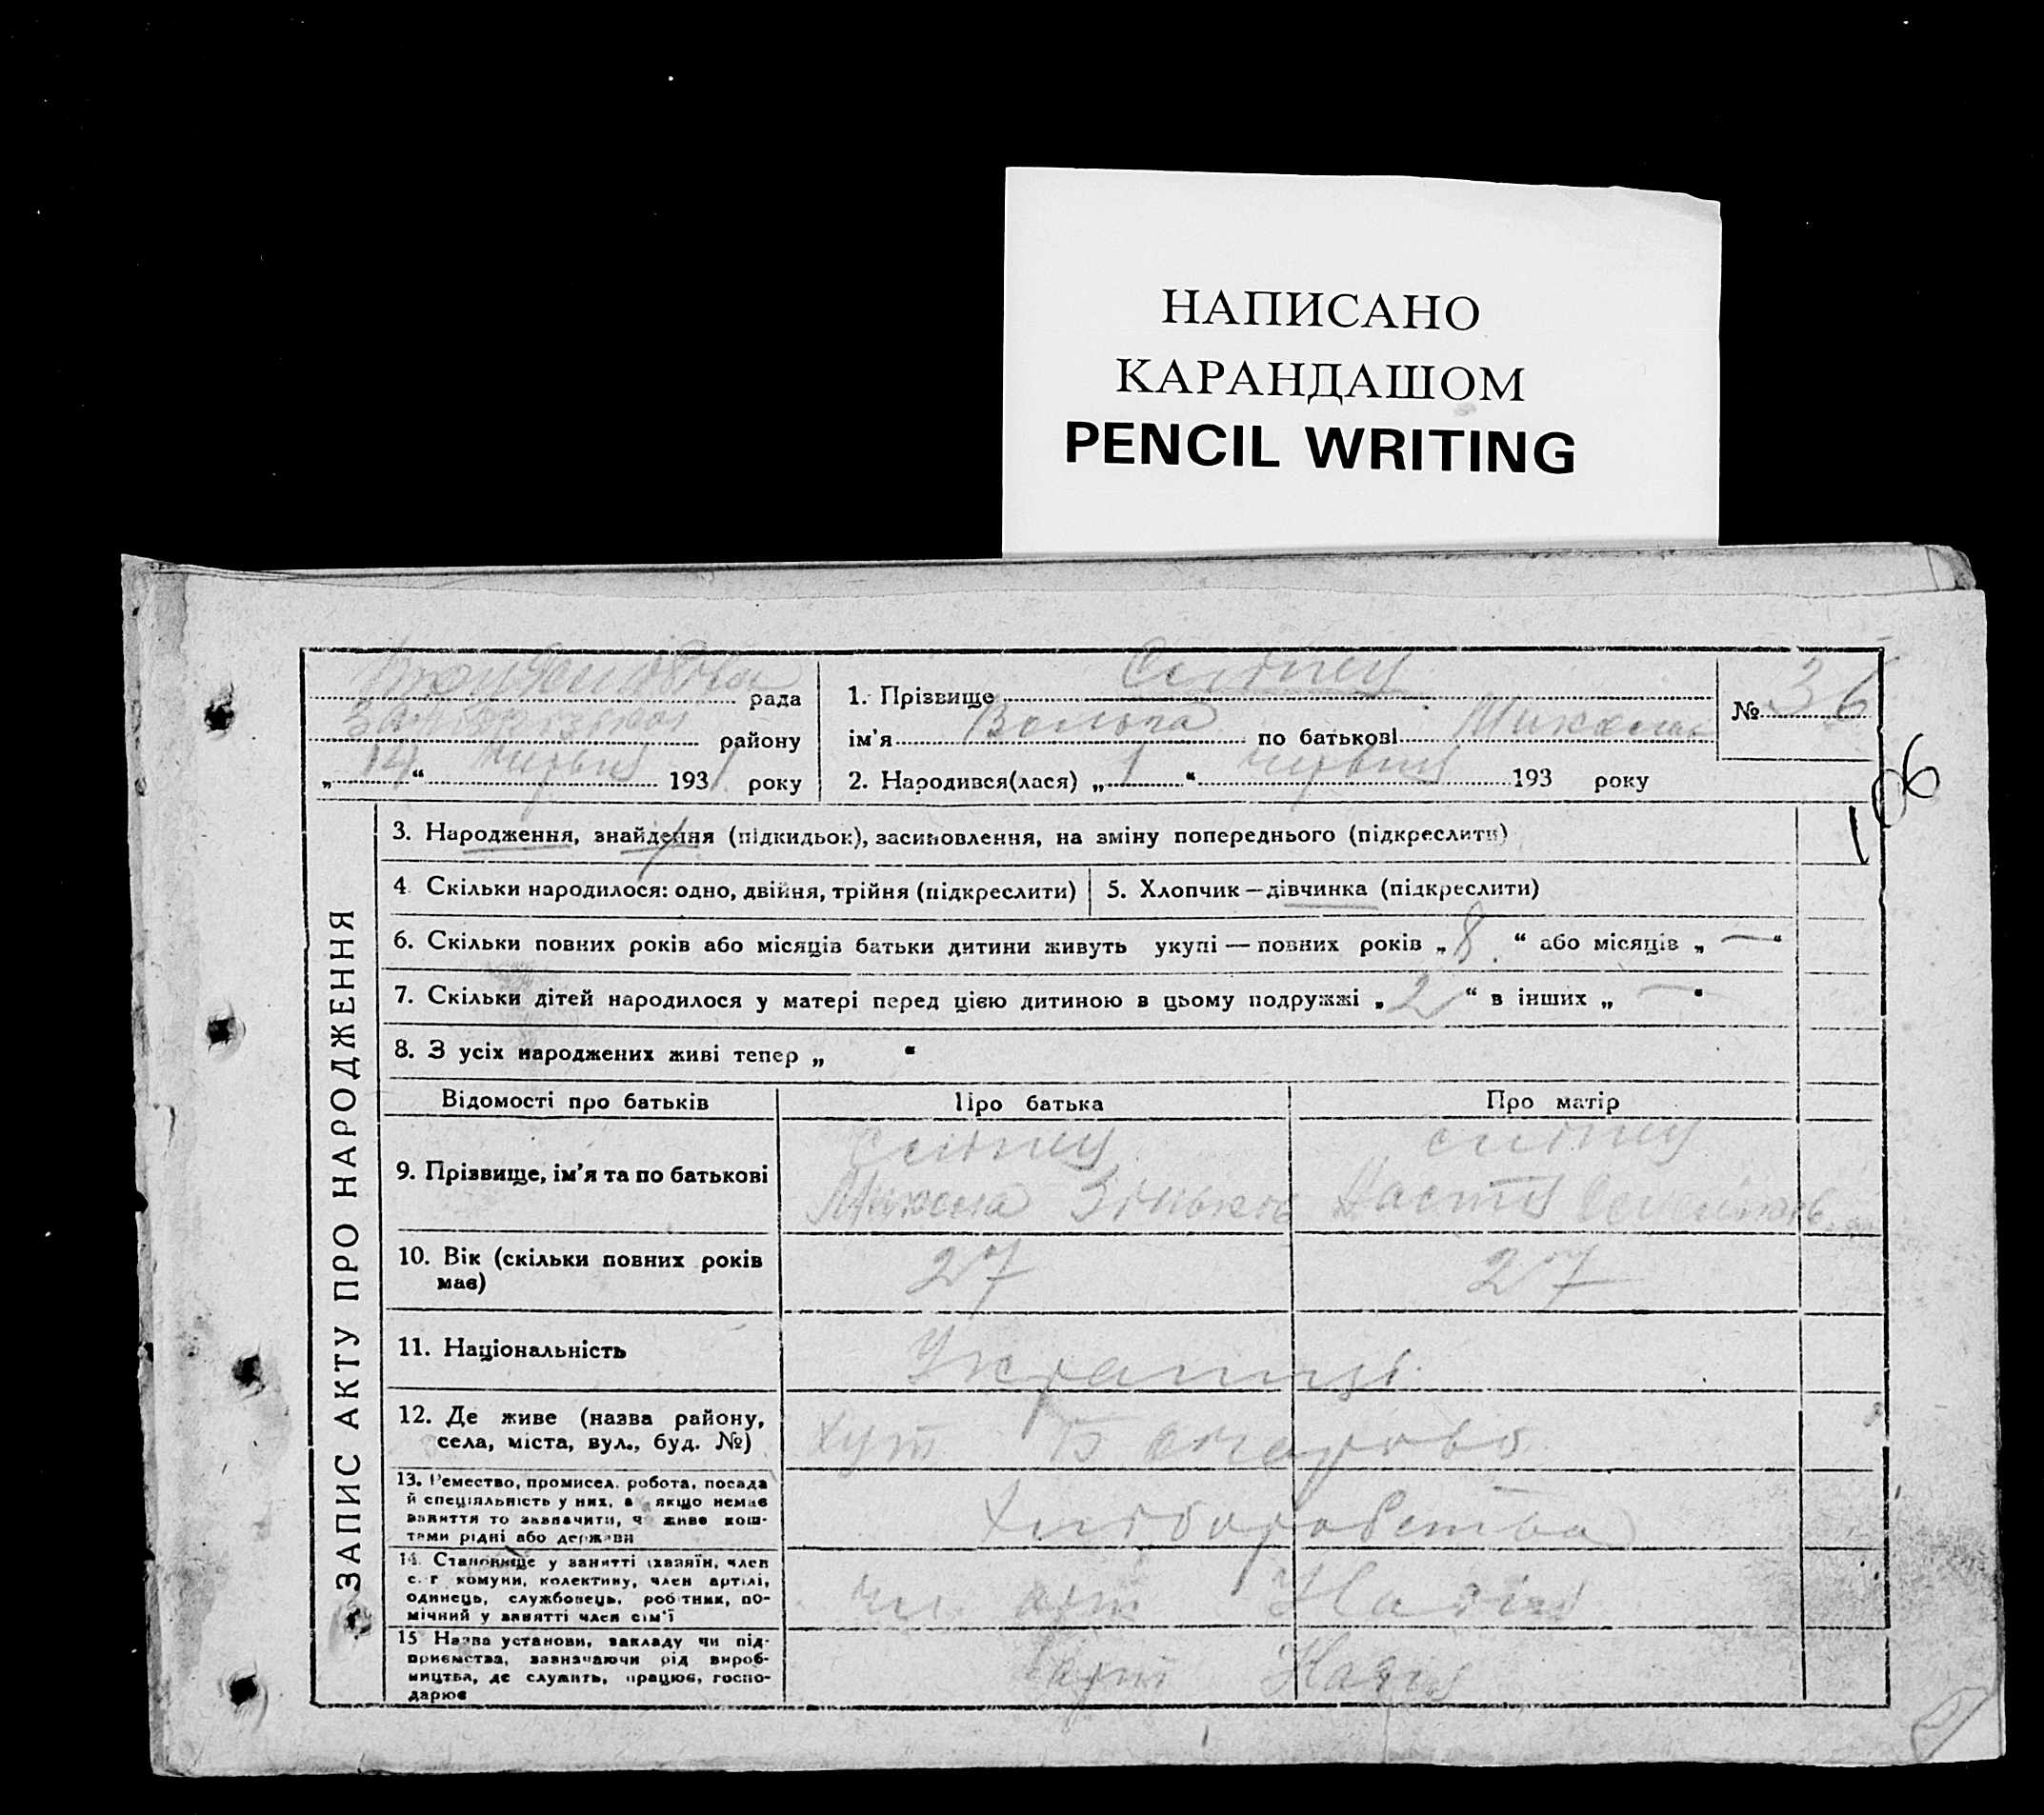 НАПИСАНО
КАРАНДАШОМ
PENCIL WRITING
рада
району
„ 14 “ червня 1931 року
1. Прізвище Сліпец
ім'я по батькові Микол
2. Народився(лася) „ 1 “ червня 193 року
№ 36
106
ЗАПИС АКТУ ПРО НАРОДЖЕННЯ
3. Народження, знайдення (підкидьок), засиновлення, на зміну попереднього (підкреслити)
4. Скільки народилося: одно, двійня, трійня (підкреслити)
5. Хлопчик — дівчинка (підкреслити)
6. Скільки повних років або місяців батьки дитини живуть укупі — повних років „ 8 “ або місяців „ — “
7. Скільки дітей народилося у матері перед цією дитиною в цьому подружжі „ 2 “ в інших „ — “
8. З усіх народжених живі тепер „ “
Відомості про батьків
Про батька
Про матір
9. Прізвище, ім'я та по батькові
Сліпец
Микола Зіньков
сліпец
Настя
10. Вік (скільки повних років має)
27
27
11. Національність
Українці
12. Де живе (назва району, села, міста, вул., буд. №)
хут
13. Ремество, промисел, робота, посада й спеціяльність у них, а якщо немає заняття то зазначити, чи живе коштами рідні або держави
Хліборобства
14. Становище у занятті (хазяїн, член с.-г комуни, колективу, член артілі, одинець, службовець, робітник, помічний у занятті член сім'ї
чл арт Надія
15 Назва установи, закладу чи підприємства, зазначаючи рід виробництва, де служить, працює, господарює
арт Надія